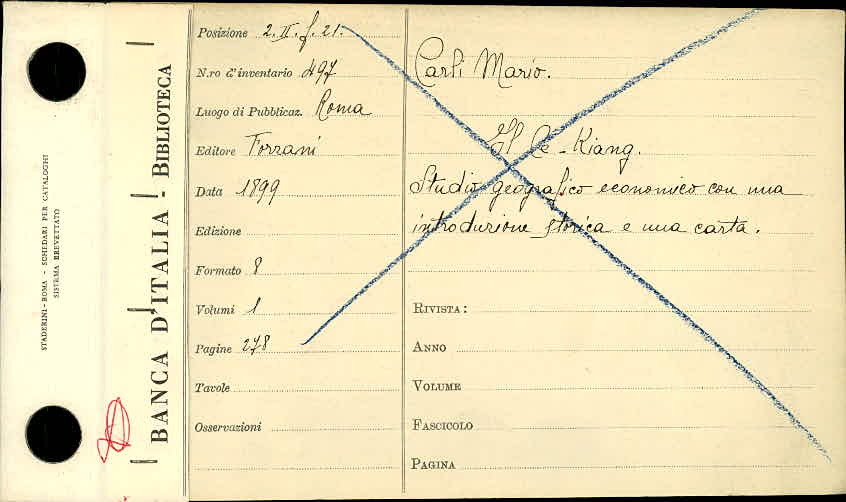 STADERINI - ROMA - SCHEDARI PER CATALOGHI
SISTEMA BREVETTATO
BANCA D'ITALIA - BIBLIOTECA
Posizione 2. II. f. 21.
N.ro d'inventario 497
Luogo di Pubblicaz. Roma
Editore Forzani
Data 1899
Edizione
Formato 8
Volumi 1
Pagine 278
Tavole
Osservazioni
Carli Mario.
Il Ce-Kiang.
Studio geografico economico con una
introduzione storica e una carta.
RIVISTA:
ANNO
VOLUME
FASCICOLO
PAGINA